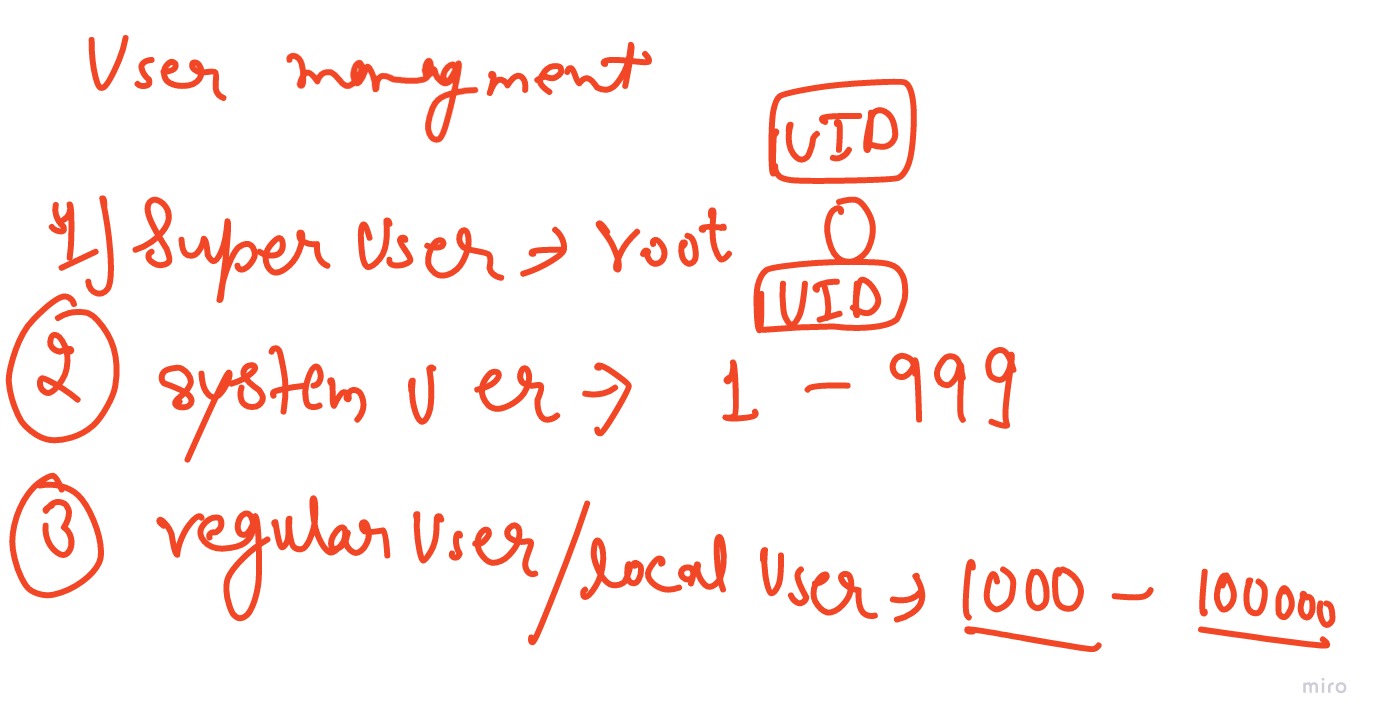 User managment
UID
1) Super User → root 0
UID
2 system u er → 1 - 999
3 regular User / local User → 1000 - 100000
miro